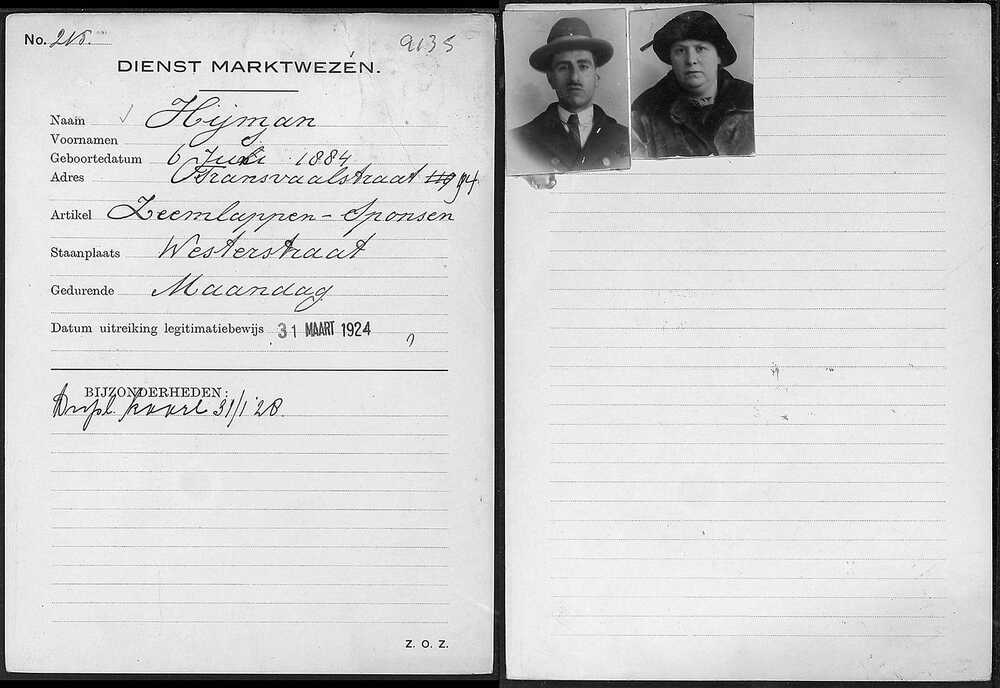 No. 215.
9135
DIENST MARKTWEZEN.
Naam Hijman
Voornamen S.
Geboortedatum 6 Juli 1884
Adres Transvaalstraat 119 94
Artikel Zeemlappen - Sponsen
Staanplaats Westerstraat
Gedurende Maandag
Datum uitreiking legitimatiebewijs 31 MAART 1924
BIJZONDERHEDEN:
Dupl. kaart 31/1 28.
Z. O. Z.